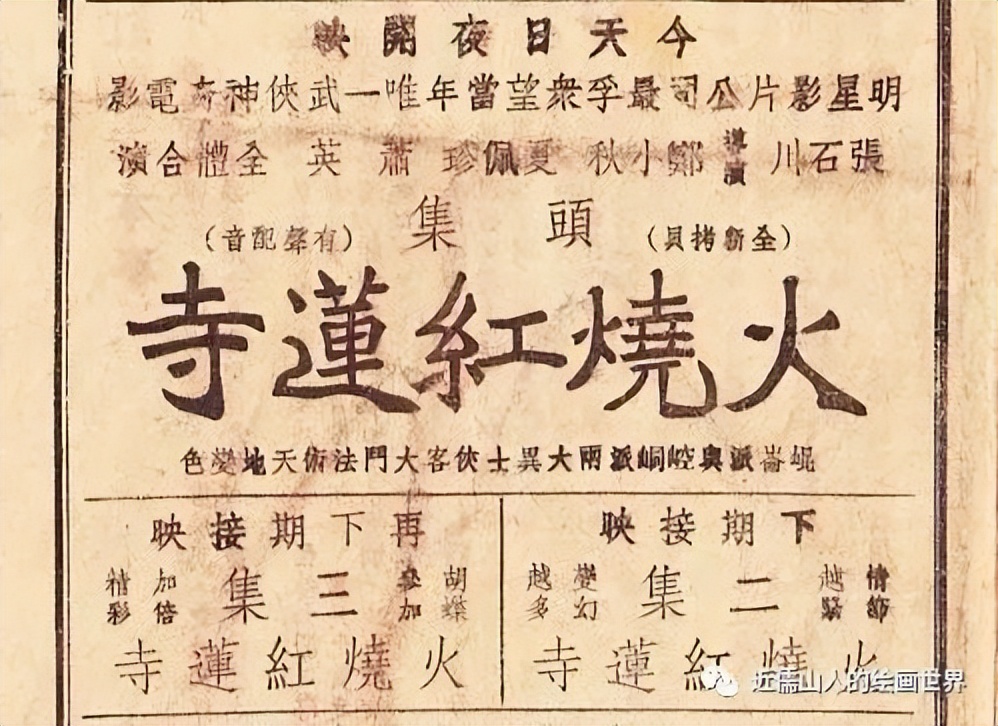 今天日夜開映
明星影片公司最孚衆望當年唯一武俠神奇電影
張石川導演 鄭小秋 夏佩珍 蕭英 全體合演
頭集
(全新拷貝)
(有聲配音)
火燒紅蓮寺
崐崙派與崆峒派兩大異士俠客大鬥法術天地變色
下期接映
情節越緊
二集
變幻越多
火燒紅蓮寺
再下期接映
胡蝶參加
三集
加倍精彩
火燒紅蓮寺
近儒山人的绘画世界